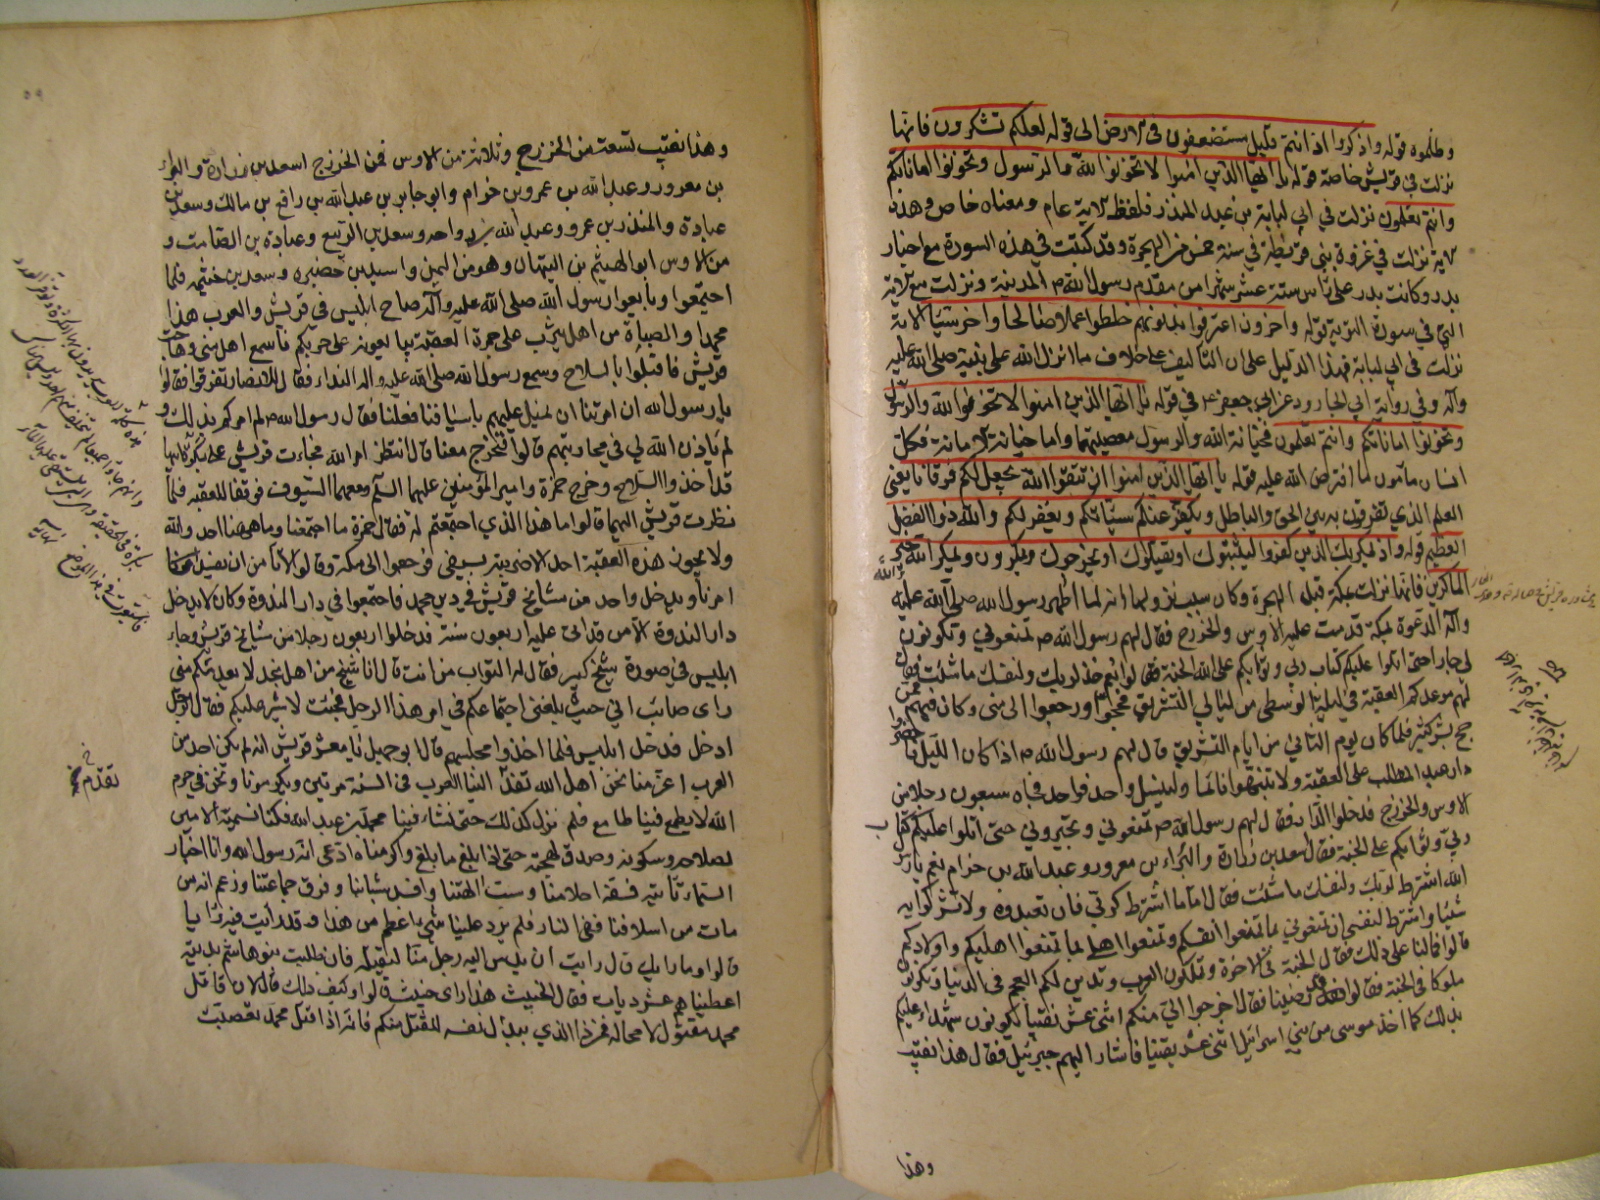 وظلموه قوله واذكروا اذ انتم قليل مستضعفون في الارض الى قوله لعلكم تشكرون فانها
نزلت في قريش خاصة قوله يا ايها الذين امنوا لا تخونوا الله والرسول وتخونوا اماناتكم
وانتم تعلمون نزلت في ابي لبابة بن عبد المنذر فلفظ الاية عام ومعناه خاص وهذه
الاية نزلت في غزوة بني قريظة في سنة خمس من الهجرة وقد كتبت في هذه السورة مع اخبار
بدر وكانت بدر على راس ستة عشر شهرا من مقدم رسول الله ص المدينة ونزلت مع الاية
التي في سورة التوبة قوله واخرون اعترفوا بذنوبهم خلطوا عملا صالحا واخر سيئا الاية
نزلت في ابي لبابة فهذا الدليل على ان التاليف على خلاف ما انزل الله على نبيه صلى الله عليه
وآله وفي رواية ابي الجارود عن ابي جعفر ع في قوله يا ايها الذين امنوا لا تخونوا الله والرسول
وتخونوا اماناتكم وانتم تعلمون فخيانة الله والرسول معصيتهما واما خيانة الامانة فكل
انسان مامون لما افترض الله عليه قوله يا ايها الذين امنوا ان تتقوا الله يجعل لكم فرقانا يعني
العلم الذي تفرقون به بين الحق والباطل ويكفر عنكم سيئاتكم ويغفر لكم والله ذو الفضل
العظيم قوله واذ يمكر بك الذين كفروا ليثبتوك او يقتلوك او يخرجوك ويمكرون ويمكر الله والله خير
الماكرين فانها نزلت بمكة قبل الهجرة وكان سبب نزولها انه لما اظهر رسول الله صلى الله عليه
وآله الدعوة بمكة قدمت عليه الاوس والخزرج فقال لهم رسول الله ص تمنعوني وتكونون
لي جار حتى اتلوا عليكم كتاب ربي وثوابكم على الله الجنة فقالوا نعم خذ لربك ولنفسك ما شئت فقال
لهم موعدكم العقبة في الليلة الوسطى من ليالي التشريق فحجوا ورجعوا الى منى وكان فيهم ممن
حج بشر كثير فلما كان يوم الثاني من ايام التشريق قال لهم رسول الله ص اذا كان الليل فاحضروا
دار عبد المطلب على العقبة ولا تنبهوا نائما ولينسل واحد فواحد فجاء سبعون رجلا من
الاوس والخزرج فدخلوا الدار فقال لهم رسول الله ص تمنعوني وتجيروني حتى اتلوا عليكم كتاب
ربي وثوابكم على الجنة فقال اسعد بن زرارة والبراء بن معرور وعبد الله بن حزام نعم يا رسول
الله اشترط لربك ولنفسك ما شئت فقال اما ما اشترط لربي فان تعبدوه ولا تشركوا به
شيئا واشترط لنفسي ان تمنعوني مما تمنعوا انفسكم وتمنعوا اهلي مما تمنعوا اهليكم واولادكم
قالوا فما لنا على ذلك فقال الجنة في الاخرة وتملكون العرب وتدين لكم العجم في الدنيا وتكونون
ملوكا في الجنة فقالوا قد رضينا فقال اخرجوا الي منكم اثنى عشر نقيبا يكونون شهداء عليكم
بذلك كما اخذ موسى من بني اسرائيل اثنى عشر نقيبا فاشار اليهم جبرئيل فقال هذا نقيب
وهذا
٥٩
وهذا نقيب تسعة من الخزرج وثلاثة من الاوس فمن الخزرج اسعد بن زرارة والبراء
بن معرور وعبد الله بن عمرو بن حرام وابو جابر بن عبد الله بن رافع بن مالك وسعد بن
عبادة والمنذر بن عمرو وعبد الله بن رواحه وسعد بن الربيع وعبادة بن الصامت و
من الاوس ابو الهيثم بن التيهان وهو من اليمن واسيد بن حضير وسعد بن خثيمه فلما
اجتمعوا وبايعوا رسول الله صلى الله عليه وآله صاح ابليس في قريش والعرب هذا
محمد والصباة من اهل يثرب على جمرة العقبة يبايعونه على حربكم فاسمع اهل منى وهاجت
قريش فاقبلوا بالسلاح وسمع رسول الله صلى الله عليه وآله النداء فقال للانصار تفرقوا فقالوا
يا رسول الله ان امرتنا ان نميل عليهم باسيافنا فعلنا فقال رسول الله ص لم اومر بذلك و
لم ياذن الله لي في محاربتهم قالوا فتخرج معنا قال انتظر امر الله فجاءت قريش على بكرة ابيها
قد اخذوا السلاح وخرج حمزة وامير المؤمنين عليهما السلم ومعهما السيوف فوقفا للعقبه فلما
نظرت قريش اليهما قالوا ما هذا الذي اجتمعتم له فقال حمزة ما اجتمعنا وما ههنا احد والله
ولا يجوز هذه العقبة احد الا ضربته بسيفي فرجعوا الى مكة وقالوا لا نامن ان يفسد
امرنا ويدخل واحد من مشايخ قريش في دين محمد فاجتمعوا في دار الندوة وكان لا يدخل
دار الندوة الا من قد اتى عليه اربعون سنة فدخلوا اربعون رجلا من مشايخ قريش وجاء
ابليس في صورة شيخ كبير فقال له البواب من انت قال انا شيخ من اهل نجد لا يعدمكم مني
راى صائب اني حيث بلغني اجتماعكم في امر هذا الرجل فجئت لاشير عليكم فقال الرجل
ادخل فدخل ابليس فلما اخذوا مجلسهم قال ابو جهل يا معشر قريش انه لم يكن احد من
العرب اعز منا نحن اهل الله تفد الينا العرب في السنة مرتين ويكرمونا ونحن في حرم
الله لا يطمع فينا طامع فلم نزل كذلك حتى نشاء فينا محمد بن عبد الله فكنا نسميه الامين
لصلاحه وسكونه وصدق لهجته حتى اذا بلغ ما بلغ واكرمناه ادعى انه رسول الله وان اخبار
السماء تاتيه فسفه احلامنا وسب الهتنا وافسد شباننا وفرق جماعتنا وزعم انه من
مات من اسلافنا ففي النار فلم يرد علينا شيء اعظم من هذا وقد رايت فيه رايا
قالوا وما رايك قال رايت ان يدس اليه رجل منا ليقتله فان طلبت بنو هاشم بديته
اعطيناهم عشر ديات فقال الخبيث هذا راي خبيث قالوا وكيف ذلك قال لان قاتل
محمد مقتول لا محاله فمن ذا الذي يبذل نفسه للقتل منكم فانه اذا قتل محمد تعصبت